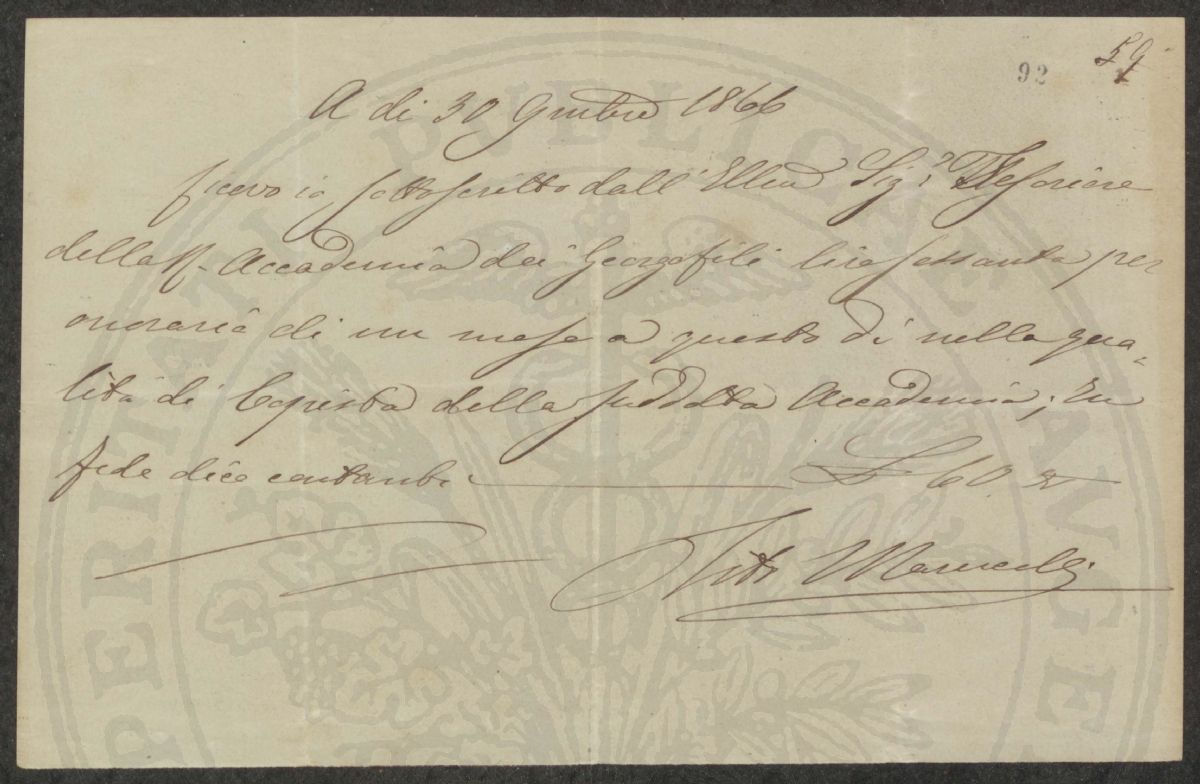 59
92
A di 30 9mbre 1866
Ricevo io sottoscritto dall' Sig.r Tesoriere
della R. Accademia dei Georgofili lire sessanta per
onorario di un mese a questo dì nella qua-
lità di Copista della suddetta Accademia; In
fede dico contanti L 60
Tito
PERITATI PUBLICAE AUGE